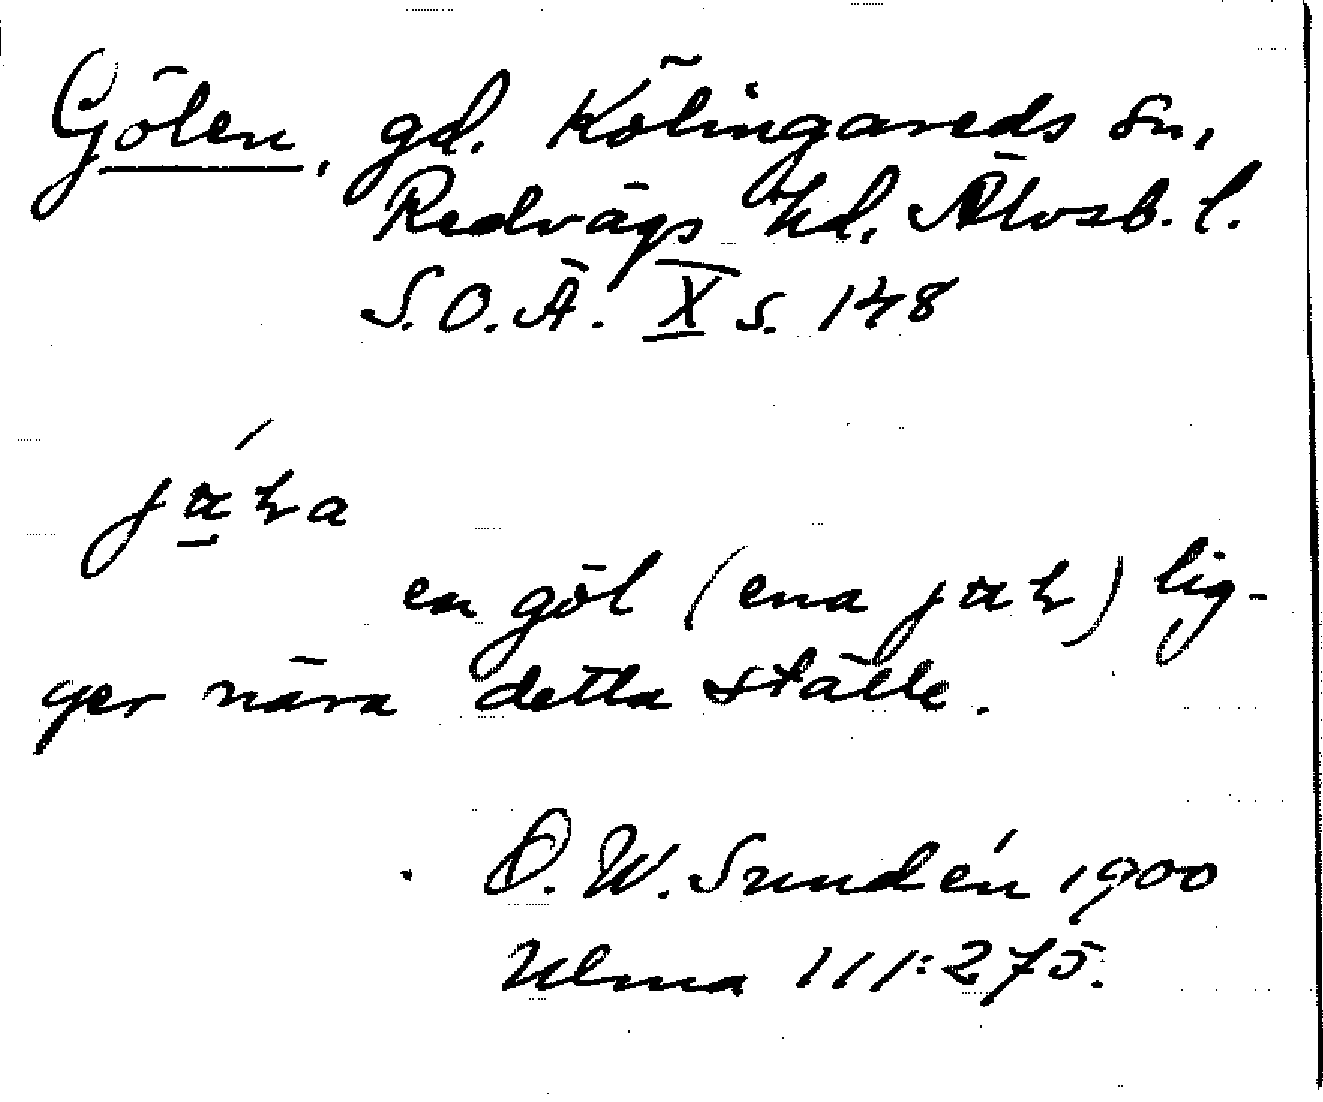 Gölen, gd. Kölingareds sn,
Redvägs hd. Älvsb. l.
S.O.Ä. X s. 148
en göl (ena) lig-
ger nära detta ställe.
O. W. Sundén 1900
Ulma 111:275.